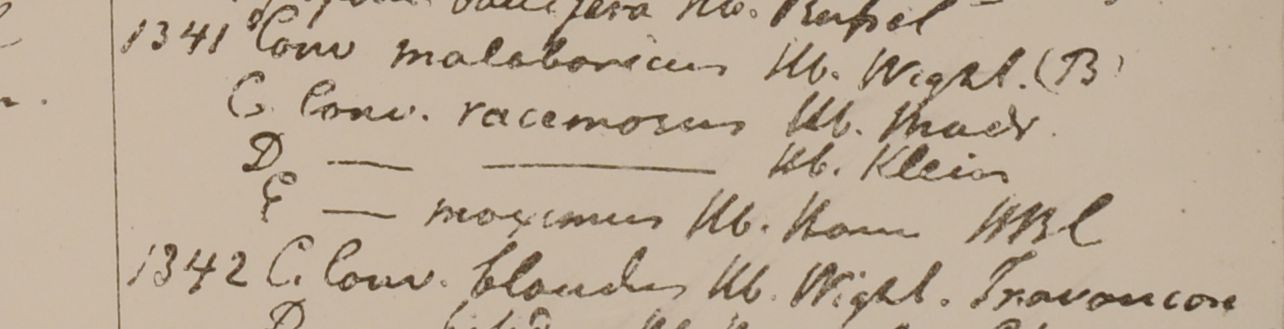 Hb.
1341 Conv malabaricus Hb. Wight. (B)
C. Conv. racemosus Hb. Madr.
D — — Hb. Klein
E — maximus Hb. Ham HBC
1342 C. Conv. blandus Hb. Wight. Travancore
D